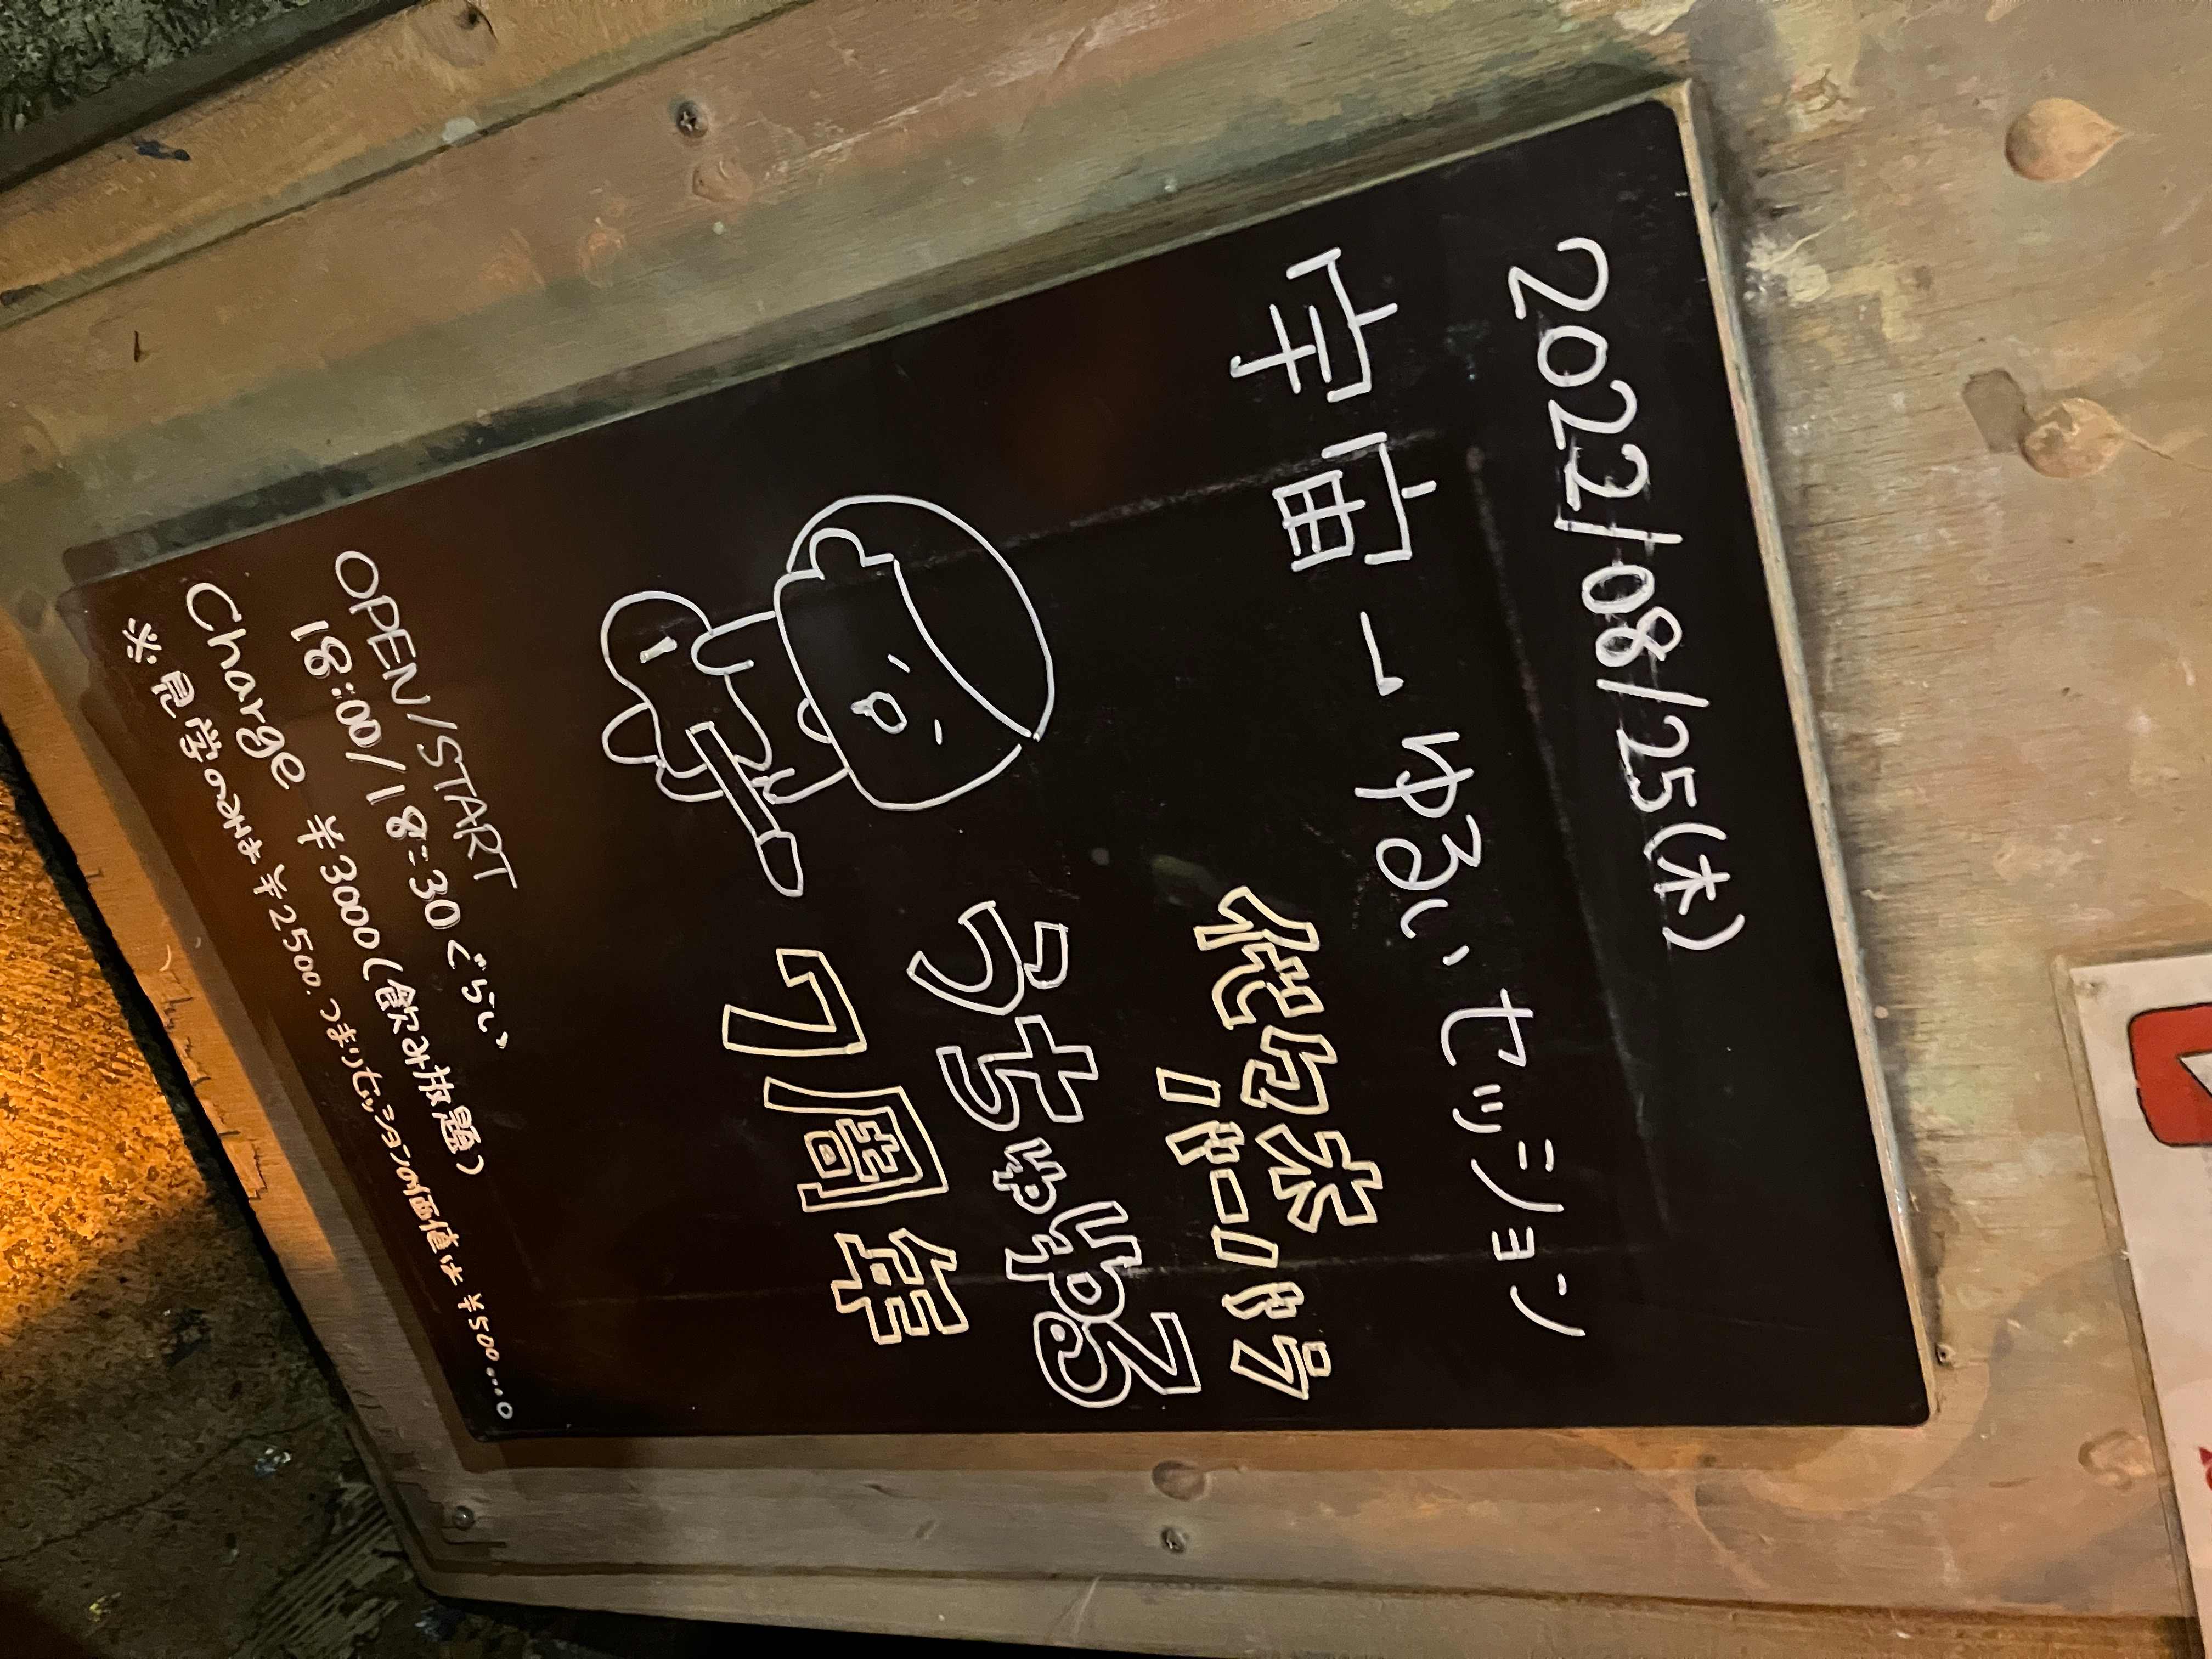 2022/08/25(木)
宇宙一ゆるいセッション
7周年
OPEN/START
18:00/18:30ぐらい
Charge ¥3000(飲み放題)
※見学のみは¥2500.つまりセッションの価値は¥500....。